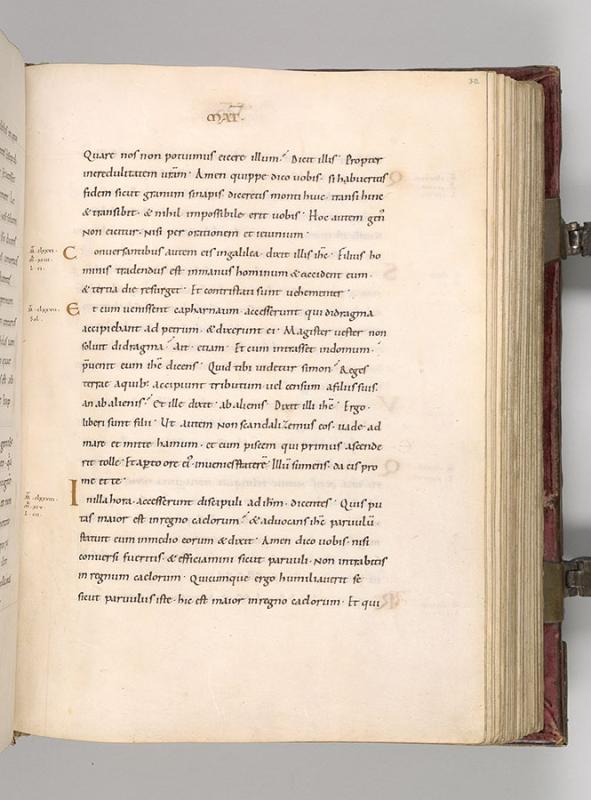 32
MAT̅.
Quare nos non potuimus eicere illum? Dicit illis. Propter
incredulitatem ur̅am. Amen quippe dico uobis. si habueritis
fidem sicut granum sinapis diceretis monti huic. transi hinc
& transibit. & nihil impossibile erit uobis. Hoc autem gen̅
non eicitur. nisi per orationem et ieiunium.
Conuersantibus autem eis ingalilea. dixit illis ih̅c. Filius ho
minis tradendus est inmanus hominum & accident eum.
& tertia die resurget. Et contristati sunt uehementer.
Et cum uenissent capharnaum. accesserunt qui didragma
accipiebant ad petrum. & dixerunt ei. Magister uester non
soluit didragma? Ait. etiam. Et cum intrasset indomum.
p̅uenit eum ih̅c dicens. Quid tibi uidetur simon? Reges
terrae a quib; accipiunt tributum uel censum. afiliis suis.
an abalienis? Et ille dixit. ab alienis. Dixit illi ih̅c. Ergo.
liberi sunt filii. Ut autem non scandalizemus eos. uade ad
mare et mitte hamum. et eum piscem qui primus ascende
rit tolle. Et apto ore ei'. inuenies staterē. Illū sumens. da eis pro
me et te.
In illa hora. accesserunt discipuli ad ih̅m. dicentes. Quis pu
tas maior est inregno caelorum? & aduocans ih̅c paruulū.
statuit eum inmedio eorum & dixit. Amen dico uobis. nisi
conuersi fueritis. & efficiamini sicut paruuli. non intrabitis
in regnum caelorum. Quicumque ergo humiliauerit se
sicut paruulus iste. hic est maior inregno caelorum. Et qui